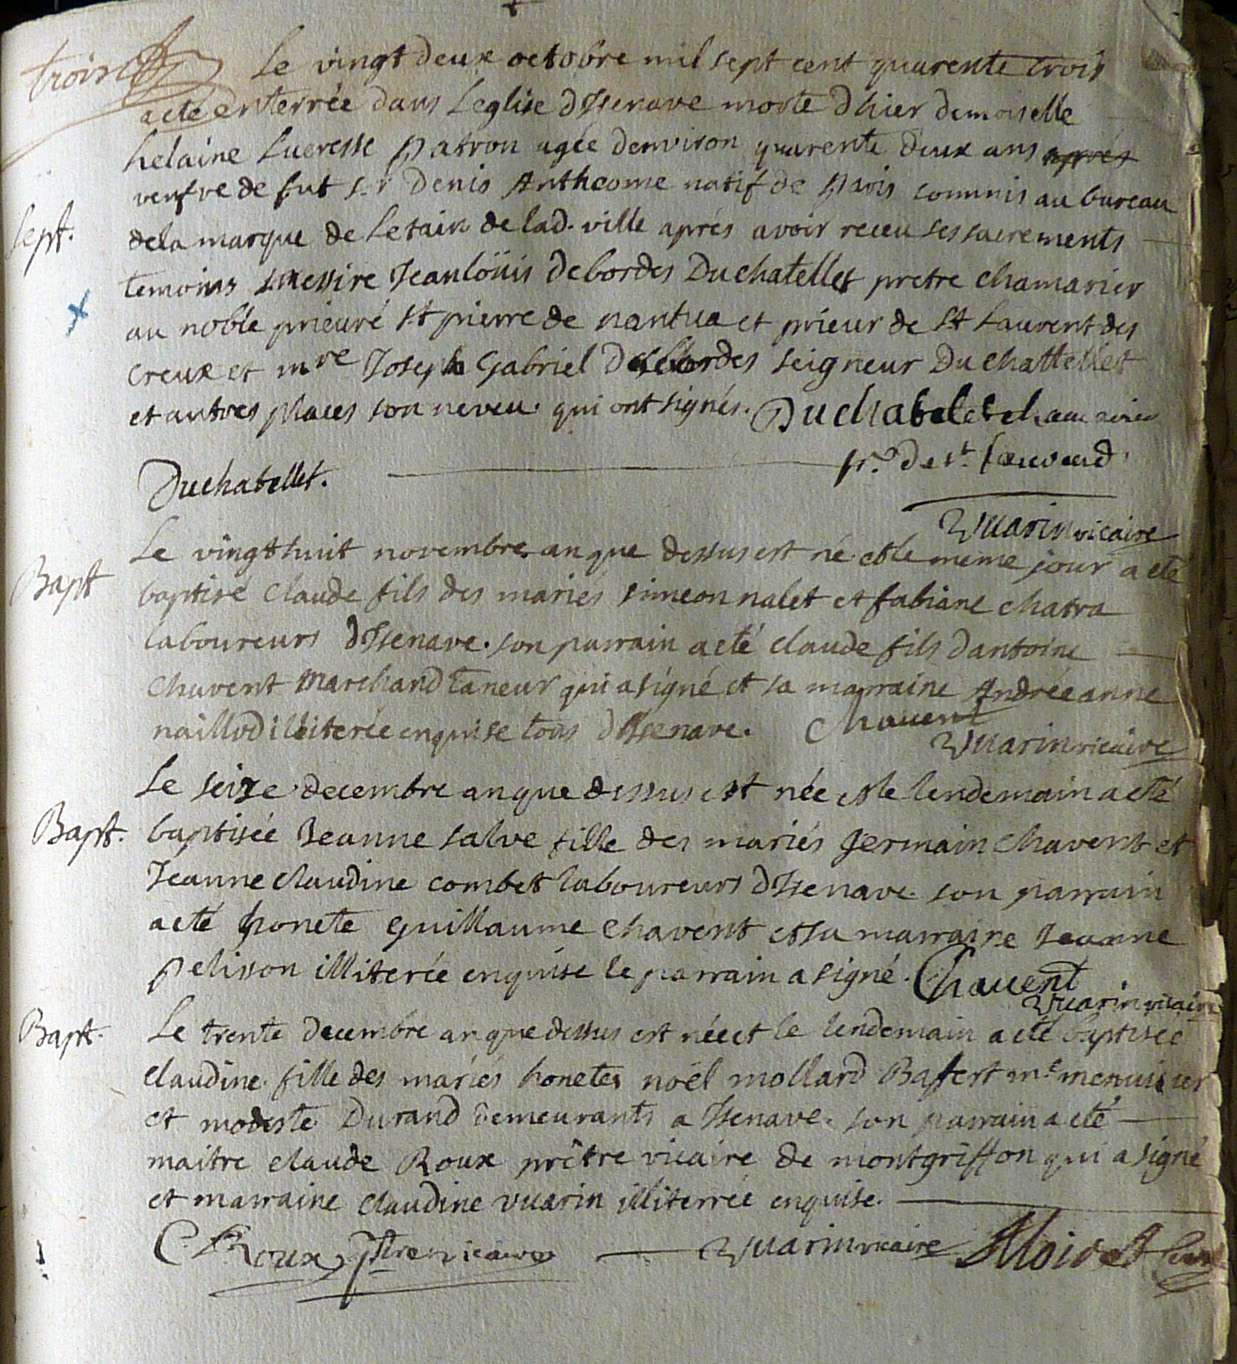 troix
Le vingt deux octobre mil sept cent quarente trois
a eté enterrée dans Leglise dIsenave morte d'hier demoiselle
helaine Lucresse patron agée denviron quarente deux ans après
Sept. veufve de fut sr Denis Antheome natif de paris commis au bureau
dela marque de Letain de lad. ville aprés avoir receu ses sacrements
temoins messire Jean loüis Debordes Duchatellet pretre chamarier
au noble prieuré st pierre de nantua et prieur de st Laurent des
creux et mre Joseph Gabriel Debordes seigneur Du chattellet
et autres places son neveu qui ont signés. Duchatelet chamarier
Duchatellet. pr. de st Laurend
Vuarin vicaire
Le vingt huit novembre an que dessus est né et le meme jour a eté
Bapt baptisé claude fils des mariés simeon nalet et fabiane chatra
laboureurs dIsenave. son parrain a eté claude fils dantoine
chavent marchand taneur qui a signé et sa marraine Andréeanne
naillod illiterée enquise tous dIsenave. Chavent
Vuarin vicaire
Le seize decembre an que dessus est née et le lendemain a eté
Bapt. baptisée Jeanne salve fille des mariés germain chavent et
Jeanne claudine combet laboureurs dIsenave. son parrain
a eté honete guillaume chavent et sa marraine Jeanne
pelisson illiterée enquise le parrain a signé. Chavent
Vuarin vicaire
Bapt. Le trente decembre an que dessus est née et le lendemain a eté baptisée
claudine fille des mariés honetes noël mollard Baffert me menuisier
et modeste Durand demeurants a Isenave. son parrain a eté
maitre claude Roux prêtre vicaire de montgriffon qui a signé
et marraine claudine vuarin illiterrée enquise.
C. Roux ptre vicaire Vuarin vicaire